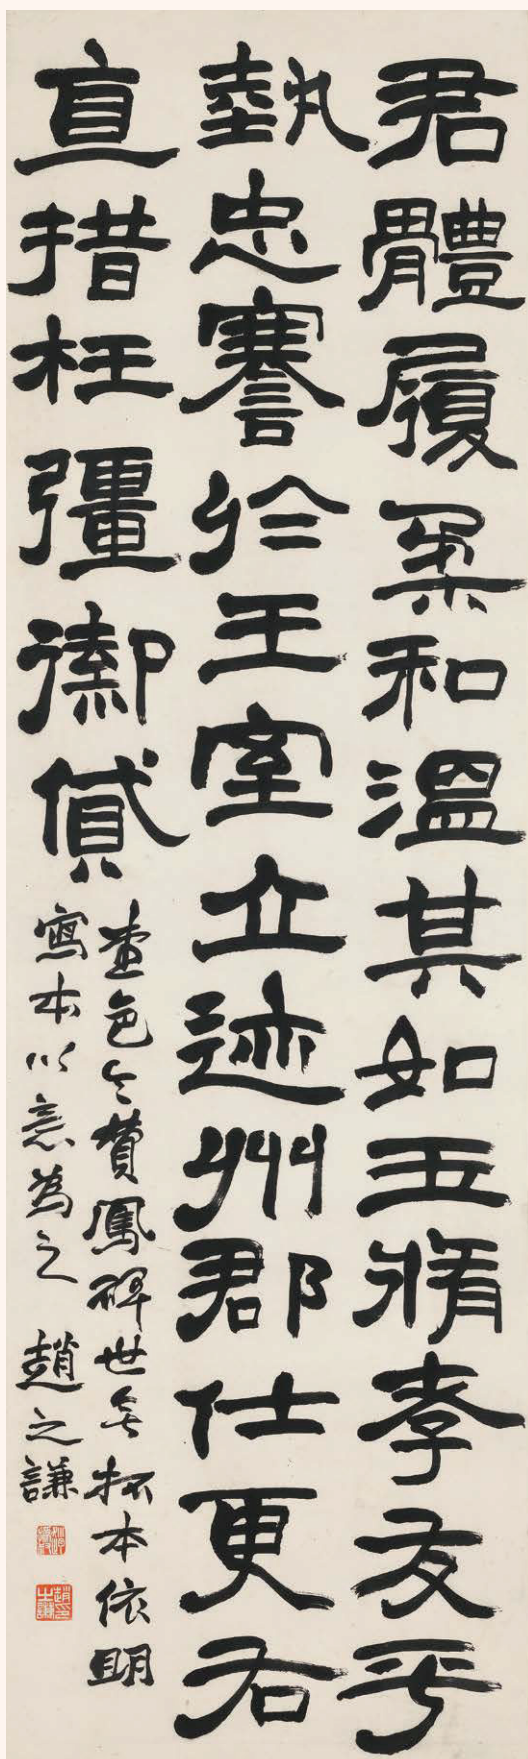 君體履柔和溫其如玉脩孝友乎
執忠謇於王室立迹州郡仕更右
直措枉彊禦貸
堂邑令費鳳碑世無拓本依明
寫本以意為之 趙之謙